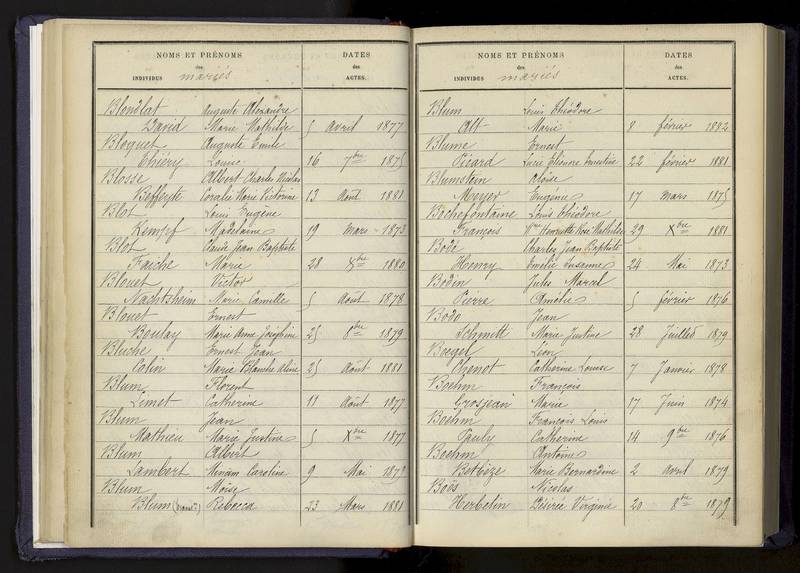 NOMS ET PRÉNOMS
des
INDIVIDUS mariés
DATES
des
ACTES.
Blondlat Auguste Alexandre
David Marie Mathilde 5 Avril 1877
Bloquet Auguste Emile
Thiéry Louise 16 7bre 1875
Blosse Albert Charles Nicolas
Beffeyte Coralie Marie Victorine 13 Août 1881
Blot Louis Eugène
Kempf Madelaine 19 Mars 1873
Blot Claude Jean Baptiste
Faiche Marie 28 Xbre 1880
Blouet Victor
Nachtsheim Marie Camille 5 Août 1878
Blouet Ernest
Boulay Marie Anne Joséphine 25 8bre 1879
Bluche Ernest Jean
Colin Marie Blanche Aline 25 Août 1881
Blum Florent
Limet Catherine 11 Août 1877
Blum Jean
Mathieu Marie Justine 5 Xbre 1877
Blum Albert
Lambert Caroline 9 Mai
Blum Moïse
Blum Rebecca 23 Mars 1881
NOMS ET PRÉNOMS
des
INDIVIDUS mariés
DATES
des
ACTES.
Blum Louis Théodore
Alt Marie 8 février 1882
Blume Ernest
Picard Lucie Eléonore Ernestine 22 février 1881
Blumstein Aloïse
Meyer Eugénie 17 mars 1875
Bochefontaine Louis Théodore
François Henriette Rose Mathilde 29 Xbre 1881
Bodé Charles Jean Baptiste
Henry Emélie Susanne 24 Mai 1873
Bodin Jules Marcel
Pierre Amélie 5 février 1876
Bodo Jean
Schmitt Marie Justine 28 Juillet 1879
Boegel Léon
Chenot Catherine Louise 7 Janvier 1878
Boehm François
Grosjean Marie 17 Juin 1874
Boehm François Louis
Pauly Catherine 14 9bre 1876
Boehm Antoine
Bettize Marie Bernardine 2 Avril 1879
Boës Nicolas
Herbelin Désirée Virginie 20 8bre 1879